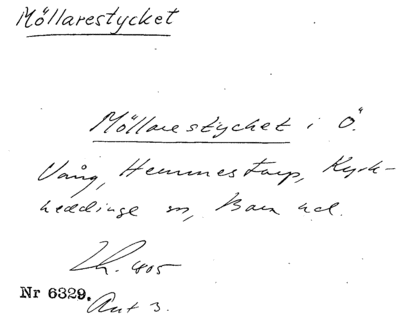 Möllarestycket
Möllarestycket i Ö.
Vång, Hemmestorp, Kyrk-
heddinge sn, Bara hd.
Lh. 1805
Nr 6329. Akt 3.